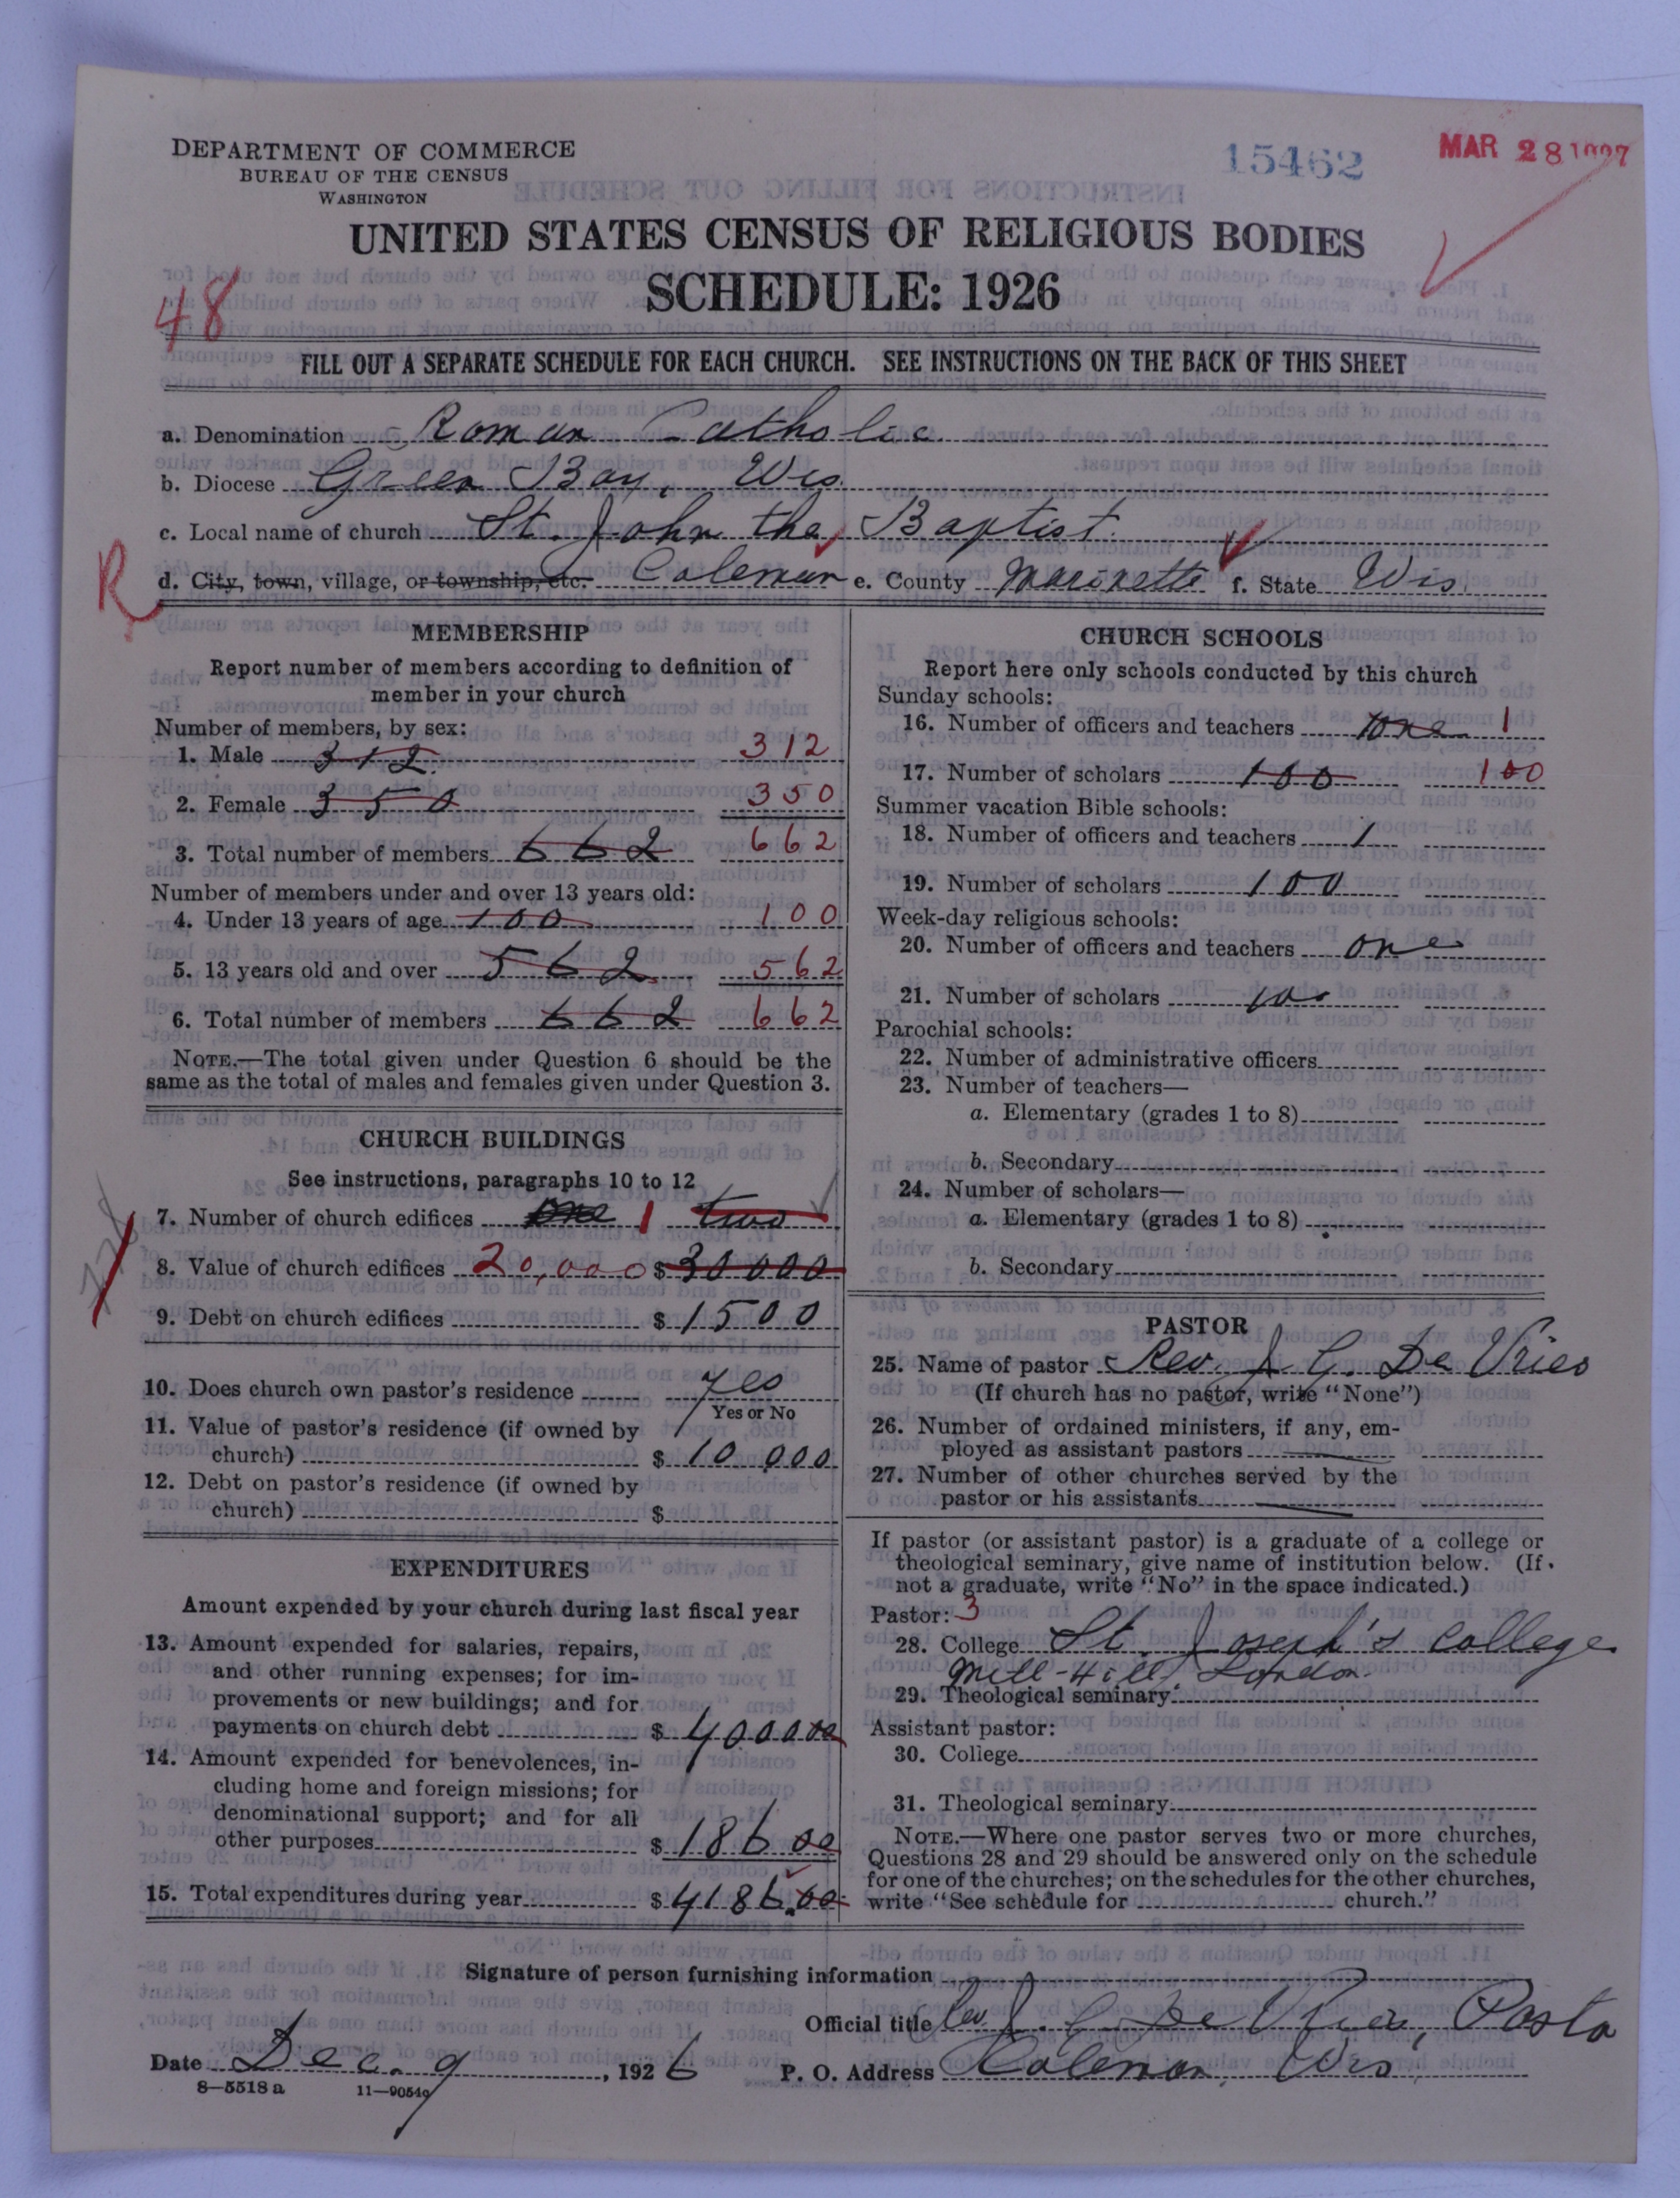 DEPARTMENT OF COMMERCE
BUREAU OF THE CENSUS
WASHINGTON
15462
MAR 28 1927
UNITED STATES CENSUS OF RELIGIOUS BODIES
SCHEDULE: 1926
48
FILL OUT A SEPARATE SCHEDULE FOR EACH CHURCH. SEE INSTRUCTIONS ON THE BACK OF THIS SHEET
a. Denomination Roman Catholic
b. Diocese Green Bay, Wis.
c. Local name of church St. John the Baptist.
R
d. City, town, village, or township, etc. Coleman e. County Marinette f. State Wis.
MEMBERSHIP
Report number of members according to definition of
member in your church
Number of members, by sex:
1. Male 312 312
2. Female 350 350
3. Total number of members 662 662
Number of members under and over 13 years old:
4. Under 13 years of age 100 100
5. 13 years old and over 562 562
6. Total number of members 662 662
NOTE.—The total given under Question 6 should be the
same as the total of males and females given under Question 3.
CHURCH BUILDINGS
See instructions, paragraphs 10 to 12
7. Number of church edifices one 1 two
8. Value of church edifices 20,000 $ 30000
9. Debt on church edifices $ 1500
10. Does church own pastor's residence yes
Yes or No
11. Value of pastor's residence (if owned by
church) $ 10 000
12. Debt on pastor's residence (if owned by
church) $
EXPENDITURES
Amount expended by your church during last fiscal year
13. Amount expended for salaries, repairs,
and other running expenses; for im-
provements or new buildings; and for
payments on church debt $ 4000 00
14. Amount expended for benevolences, in-
cluding home and foreign missions; for
denominational support; and for all
other purposes $ 186 00
15. Total expenditures during year $ 4186.00
CHURCH SCHOOLS
Report here only schools conducted by this church
Sunday schools:
16. Number of officers and teachers one 1
17. Number of scholars 100 100
Summer vacation Bible schools:
18. Number of officers and teachers 1
19. Number of scholars 100
Week-day religious schools:
20. Number of officers and teachers one
21. Number of scholars 100
Parochial schools:
22. Number of administrative officers
23. Number of teachers—
a. Elementary (grades 1 to 8)
b. Secondary
24. Number of scholars—
a. Elementary (grades 1 to 8)
b. Secondary
PASTOR
25. Name of pastor Rev. J. G. De Vries
(If church has no pastor, write "None")
26. Number of ordained ministers, if any, em-
ployed as assistant pastors
27. Number of other churches served by the
pastor or his assistants
If pastor (or assistant pastor) is a graduate of a college or
theological seminary, give name of institution below. (If
not a graduate, write "No" in the space indicated.)
Pastor: 3
28. College St. Joseph's College
Mill-Hill London.
29. Theological seminary
Assistant pastor:
30. College
31. Theological seminary
NOTE.—Where one pastor serves two or more churches,
Questions 28 and 29 should be answered only on the schedule
for one of the churches; on the schedules for the other churches,
write "See schedule for church."
Signature of person furnishing information
Official title Rev. J. G. De Vries, Pastor
Date Dec. 9, 1926 P. O. Address Coleman, Wis.
8—5518a 11—9054